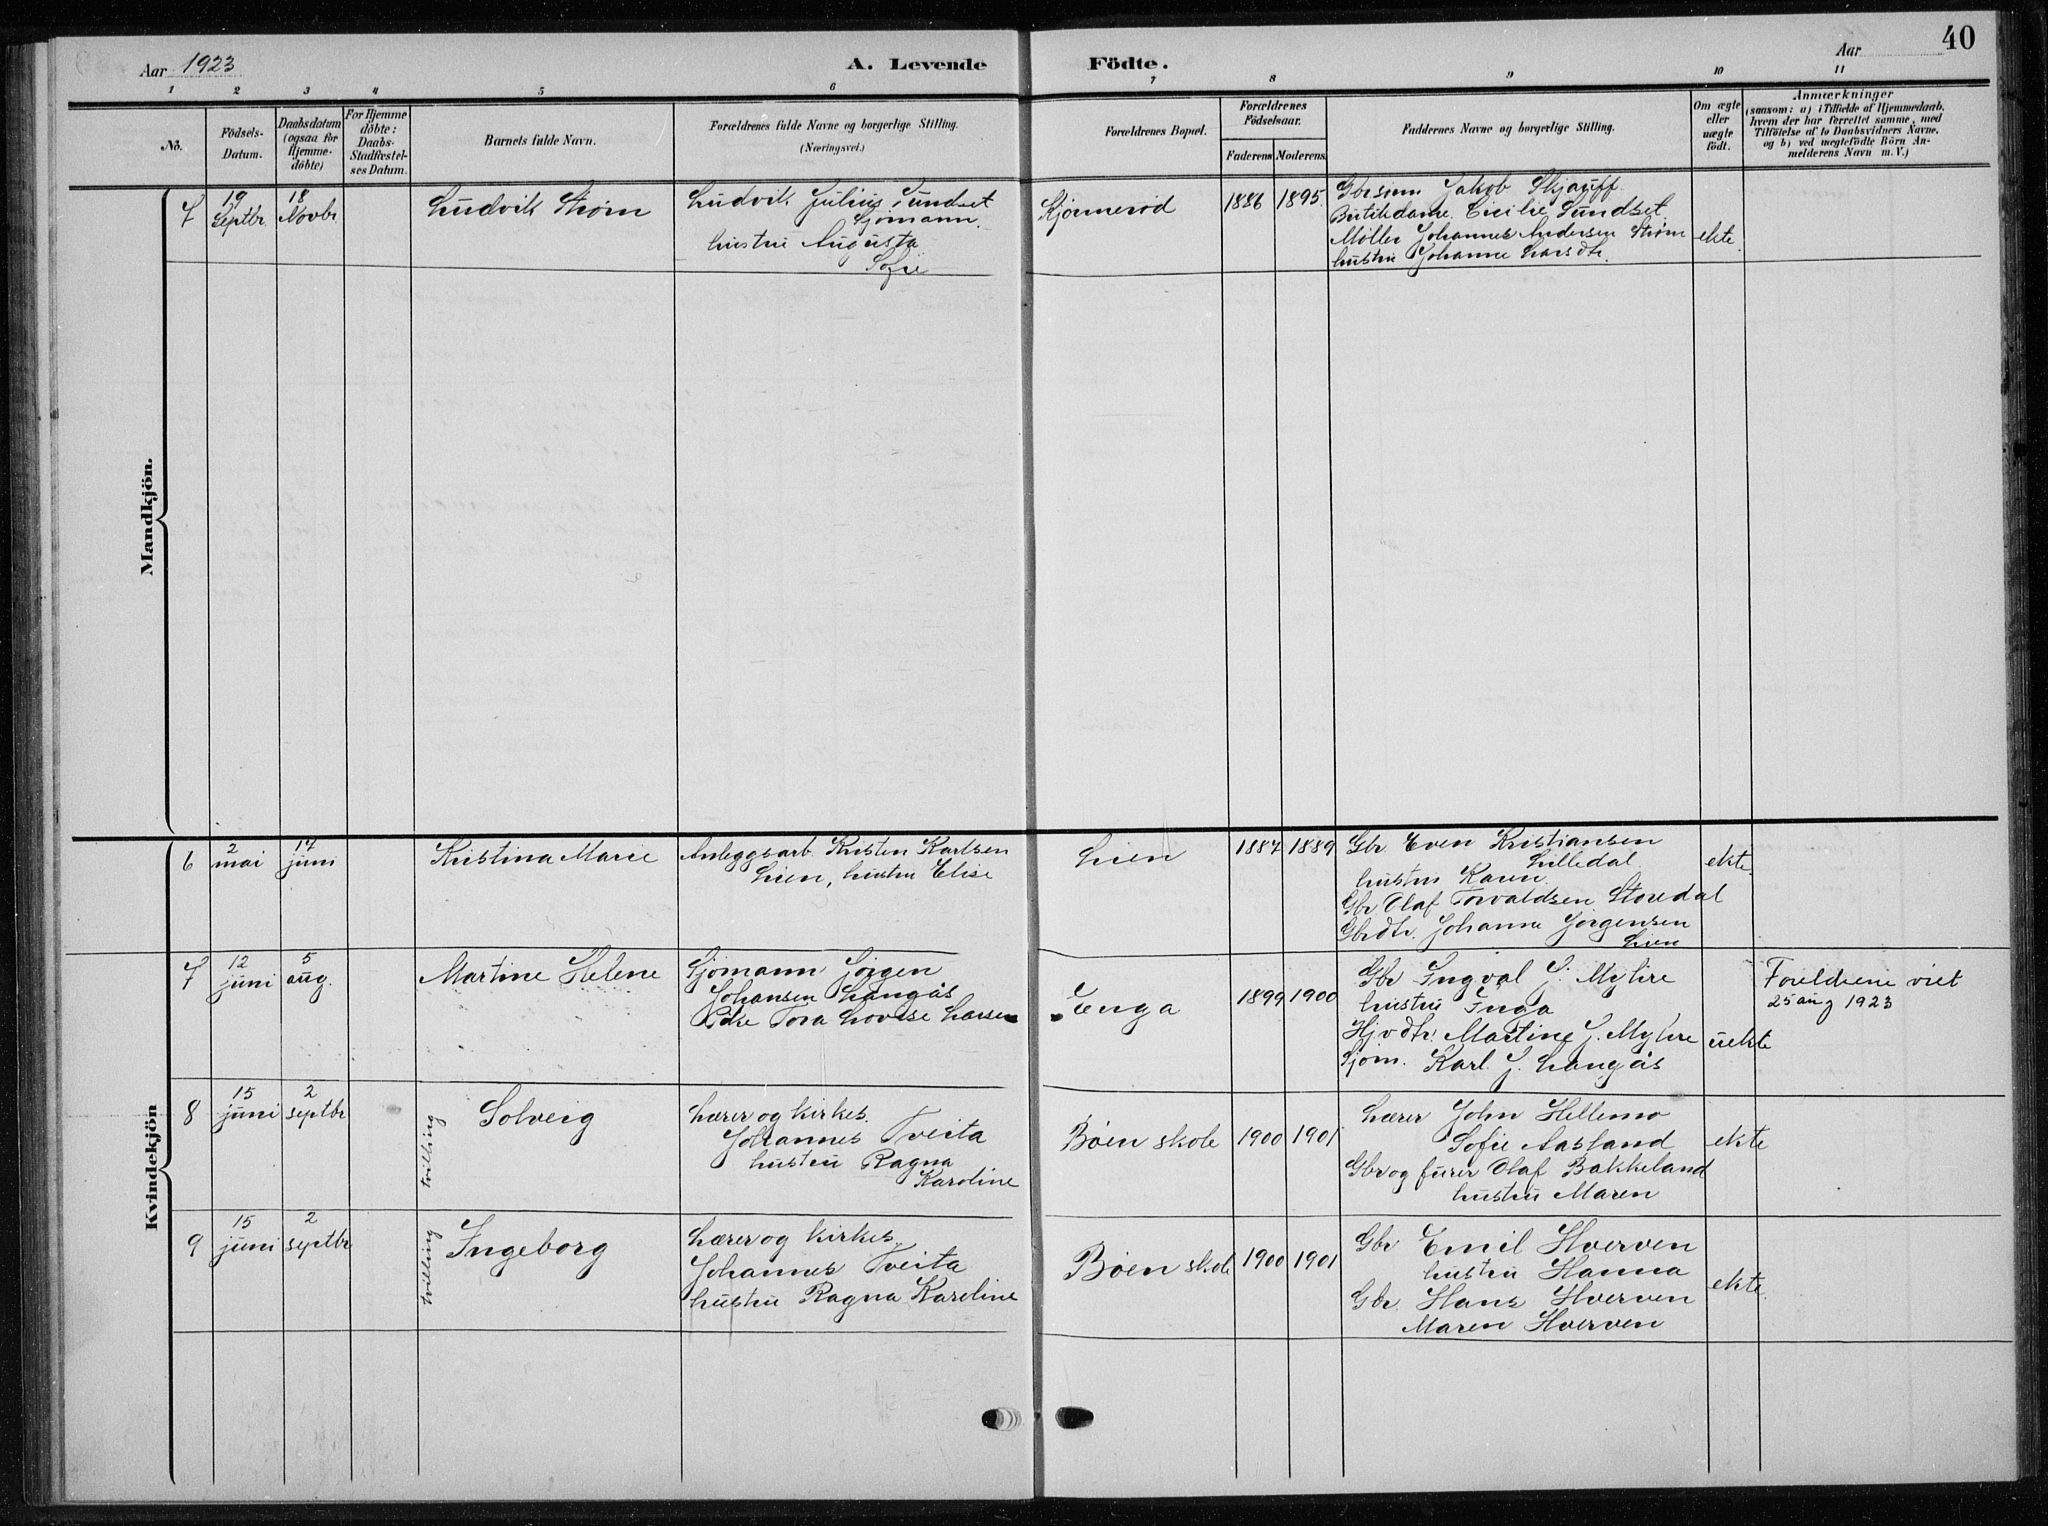 Aar 1923
A. Levende Fødte.
Aar
40
1 2 3 4 5 6 7 8 9 10 11
No.
Fødsels-
Datum.
Daabsdatum
(ogsaa for
Hjemme-
døbte)
For Hjemme
døbte:
Daabs-
Stadfæstel-
ses Datum.
Barnets fulde Navn.
Forældrenes fulde Navne og borgerlige Stilling.
(Næringsvei.)
Forældrenes Bopæl.
Forældrenes
Fødselsaar.
Faderens Moderens.
Faddernes Navne og borgerlige Stilling.
Om ægte
eller
uægte
født.
Anmærkninger
(saasom: a) i Tilfælde af Hjemmedaab,
hvem der har forrettet samme, med
Tilføielse af to Daabsvidners Navne,
og b) ved uægtefødte Börn An-
melderens Navn m. V.)
Mandkjön.
7
19
Septbr.
18
Novbr
Ludvik Strøm
Ludvik Julius Sundset
Sjømann.
hustru Augusta
Sofie
Kjønnerød
1886 1895.
Gbrsøn Jakob
Butikdame Cicilie Sundset
Møller Johannes Andersen Strøm
hustru Johanne Larsdtr.
ekte.
Kvindekjön
6
2
mai
17
juni
Kristina Marie
Anleggsarb. Kristen Karlsen
Lien, hustru Elise
Lien
1887 1889
Gbr Even Kristiansen
Lilledal
hustru Karen.
Gbr Olaf Torvaldsen Storedal
Gbrdtr. Johanne Jørgensen
Lien
ekte.
7
12
juni
5
aug.
Martine Helene
Sjømann Jørgen
Johansen Langås
Pike Tora Lovise Larsen
Enga
1899 1900
Gbr Ingval J. Myhre
hustru Inga
Hjvdtr. Martine J. Myhre
Sjøm. Karl J. Langås
uekte
Foreldrene viet
25 aug 1923
8
15
juni
2
septbr
tvilling
Solveig
Lærer og kirkes.
Johannes Tveita
hustru Ragna
Karoline
Bøen skole
1900 1901
Lærer John Hellemo
Sofie Aasland
Gbr og furer Olaf Bakkeland
hustru Maren
ekte
9
15
juni
2
septbr
tvilling
Ingeborg
Lærer og kirkes.
Johannes Tveita
hustru Ragna Karoline
Bøen skole
1900 1901
Gbr Emil Hverven
hustru Hanna
Gbr. Hans Hverven
Maren Hverven
ekte.